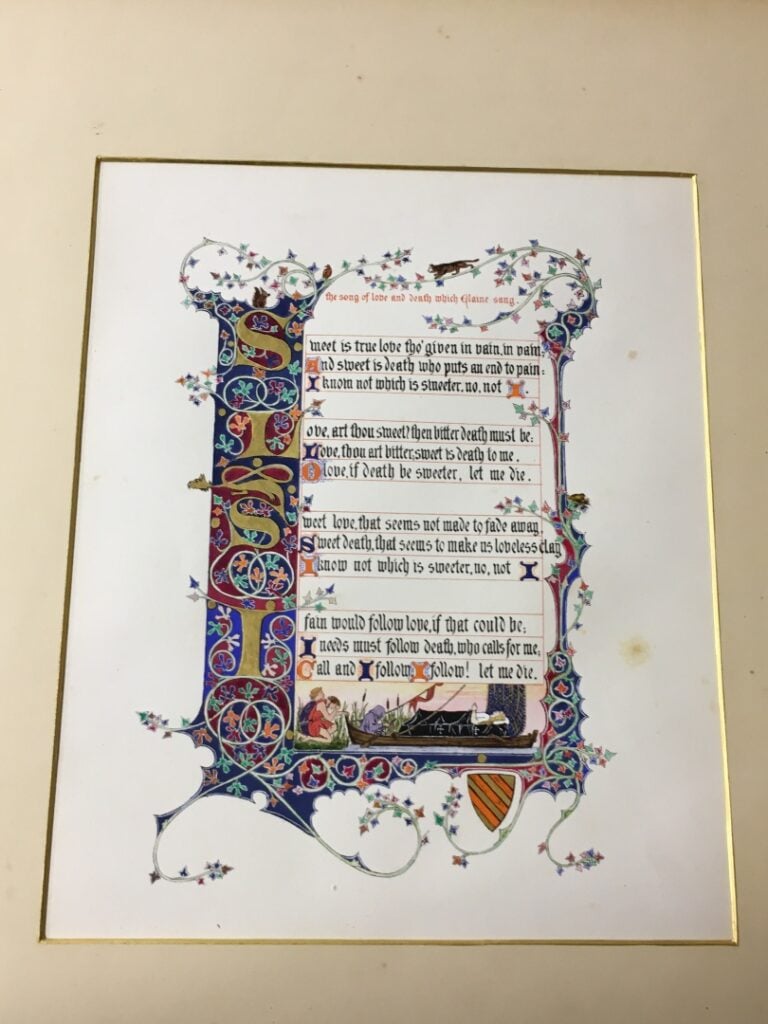 the song of love and death which Elaine sang.
Sweet is true love tho' given in vain, in vain;
And sweet is death who puts an end to pain:
I know not which is sweeter, no, not I.
Love, art thou sweet? then bitter death must be:
Love, thou art bitter; sweet is death to me.
O love, if death be sweeter, let me die.
Sweet love, that seems not made to fade away,
Sweet death, that seems to make us loveless clay
I know not which is sweeter, no, not I
I fain would follow love, if that could be;
I needs must follow death, who calls for me;
Call and I follow, I follow! let me die.